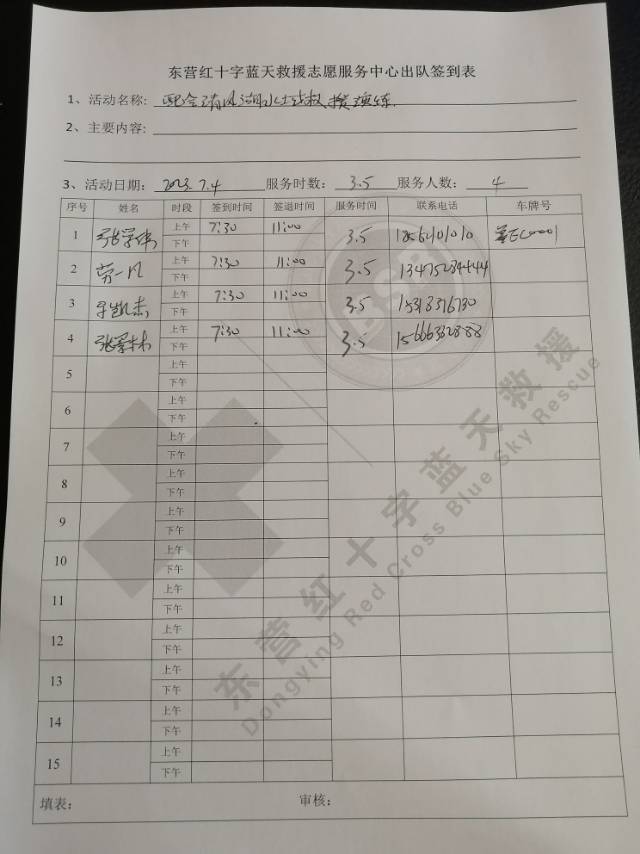 东营红十字蓝天救援志愿服务中心出队签到表
1、活动名称: 配合清风湖水上救援演练
2、主要内容:
3、活动日期: 2023.7.4 服务时数: 3.5 服务人数: 4
序号 姓名 时段 签到时间 签退时间 服务时间 联系电话 车牌号
1 上午 7:30 11:00 3.5
下午
2 劳一凡 上午 7:30 11:00 3.5
下午
3 上午 7:30 11:00 3.5
下午
4 上午 7:30 11:00 3.5 15666332888
下午
5 上午
下午
6 上午
下午
7 上午
下午
8 上午
下午
9 上午
下午
10 上午
下午
11 上午
下午
12 上午
下午
13 上午
下午
14 上午
下午
15 上午
下午
填表: 审核:
东营红十字蓝天救援
Dongying Red Cross Blue Sky Rescue